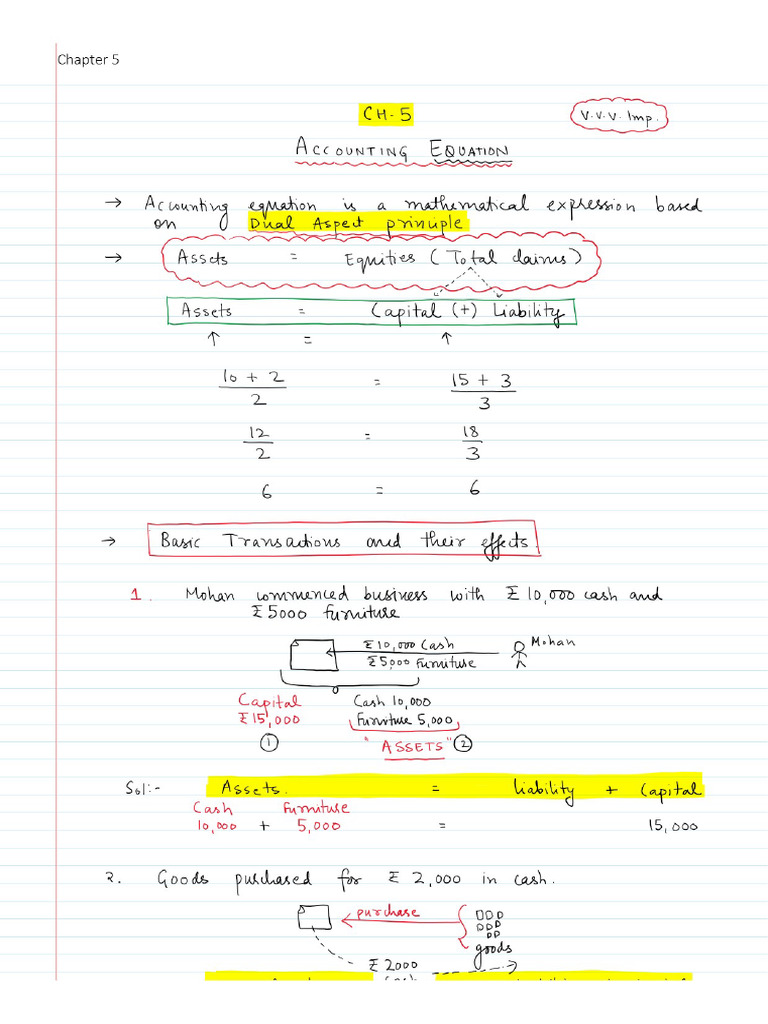 Chapter 5
CH-5
V.V.V. Imp.
ACCOUNTING EQUATION
→ Accounting equation is a mathematical expression based
on Dual Aspect principle
→ Assets = Equities (Total claims)
Assets = Capital (+) Liability
↑ = ↑
10 + 2 = 15 + 3
2 3
12 = 18
2 3
6 = 6
→ Basic Transactions and their effects.
1. Mohan commenced business with ₹ 10,000 cash and
₹ 5000 furniture
₹ 10,000 Cash
Mohan
₹ 5,000 Furniture
Capital Cash 10,000
₹ 15,000 Furniture 5,000
① "ASSETS" ②
Sol:- Assets. = liability + Capital
Cash Furniture
10,000 + 5,000 = 15,000
2. Goods purchased for ₹ 2,000 in cash.
purchase
goods
₹ 2000